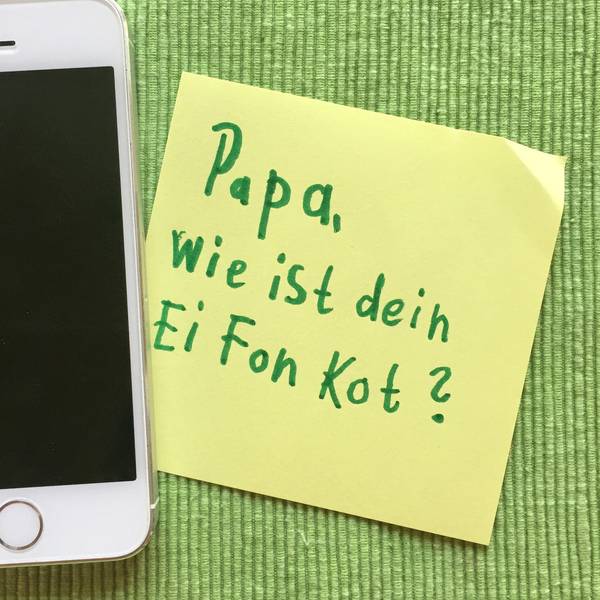 Papa,
wie ist dein
Ei Fon Kot?